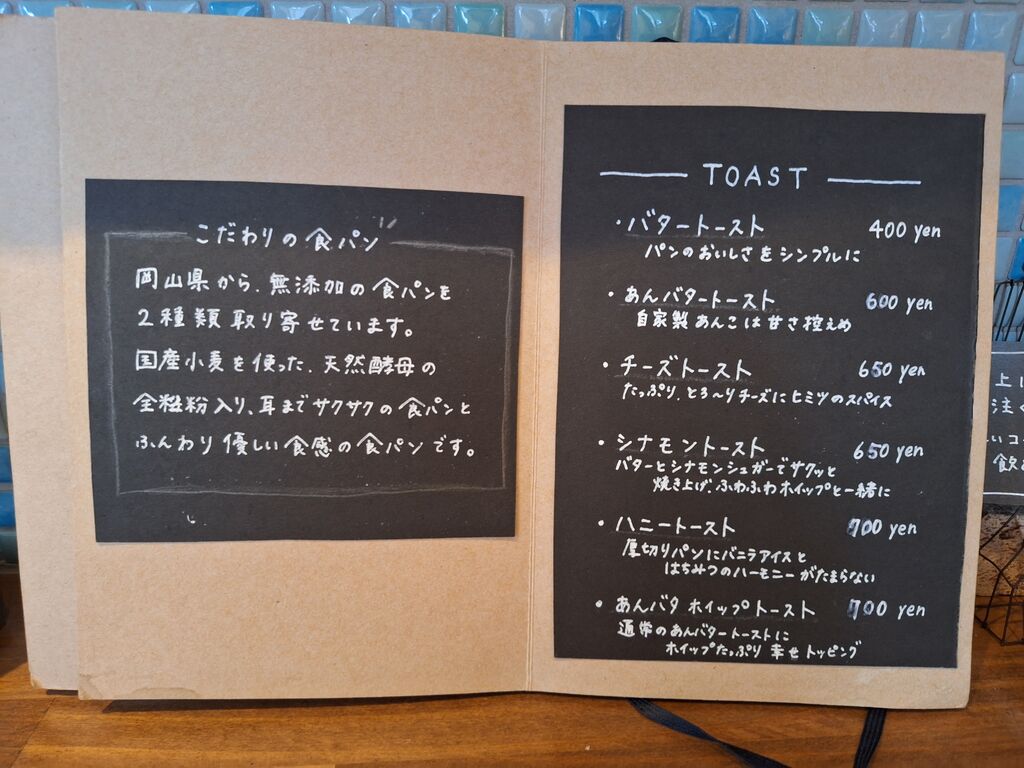 こだわりの食パン
岡山県から、無添加の食パンを
2種類取り寄せています。
国産小麦を使った、天然酵母の
全粒粉入り、耳までサクサクの食パンと
ふんわり優しい食感の食パンです。
TOAST
・バタートースト 400 yen
パンのおいしさをシンプルに
・あんバタートースト 600 yen
自家製あんこは甘さ控えめ
・チーズトースト 650 yen
たっぷり、とろ〜りチーズにヒミツのスパイス
・シナモントースト 650 yen
バターとシナモンシュガーでサクッと
焼き上げ、ふわふわホイップと一緒に
・ハニートースト 700 yen
厚切りパンにバニラアイスと
はちみつのハーモニーがたまらない
・あんバタホイップトースト 700 yen
通常のあんバタートーストに
ホイップたっぷり幸せトッピング
上
注
コ
飲